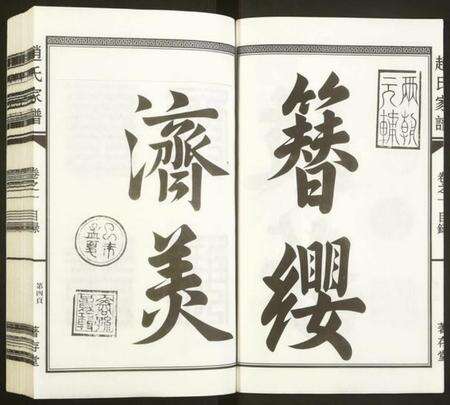 趙氏家譜
卷之一 目錄
著存堂
兩朝元輔
簪纓
濟美
趙氏家譜
卷之一 目錄
第四頁
著存堂